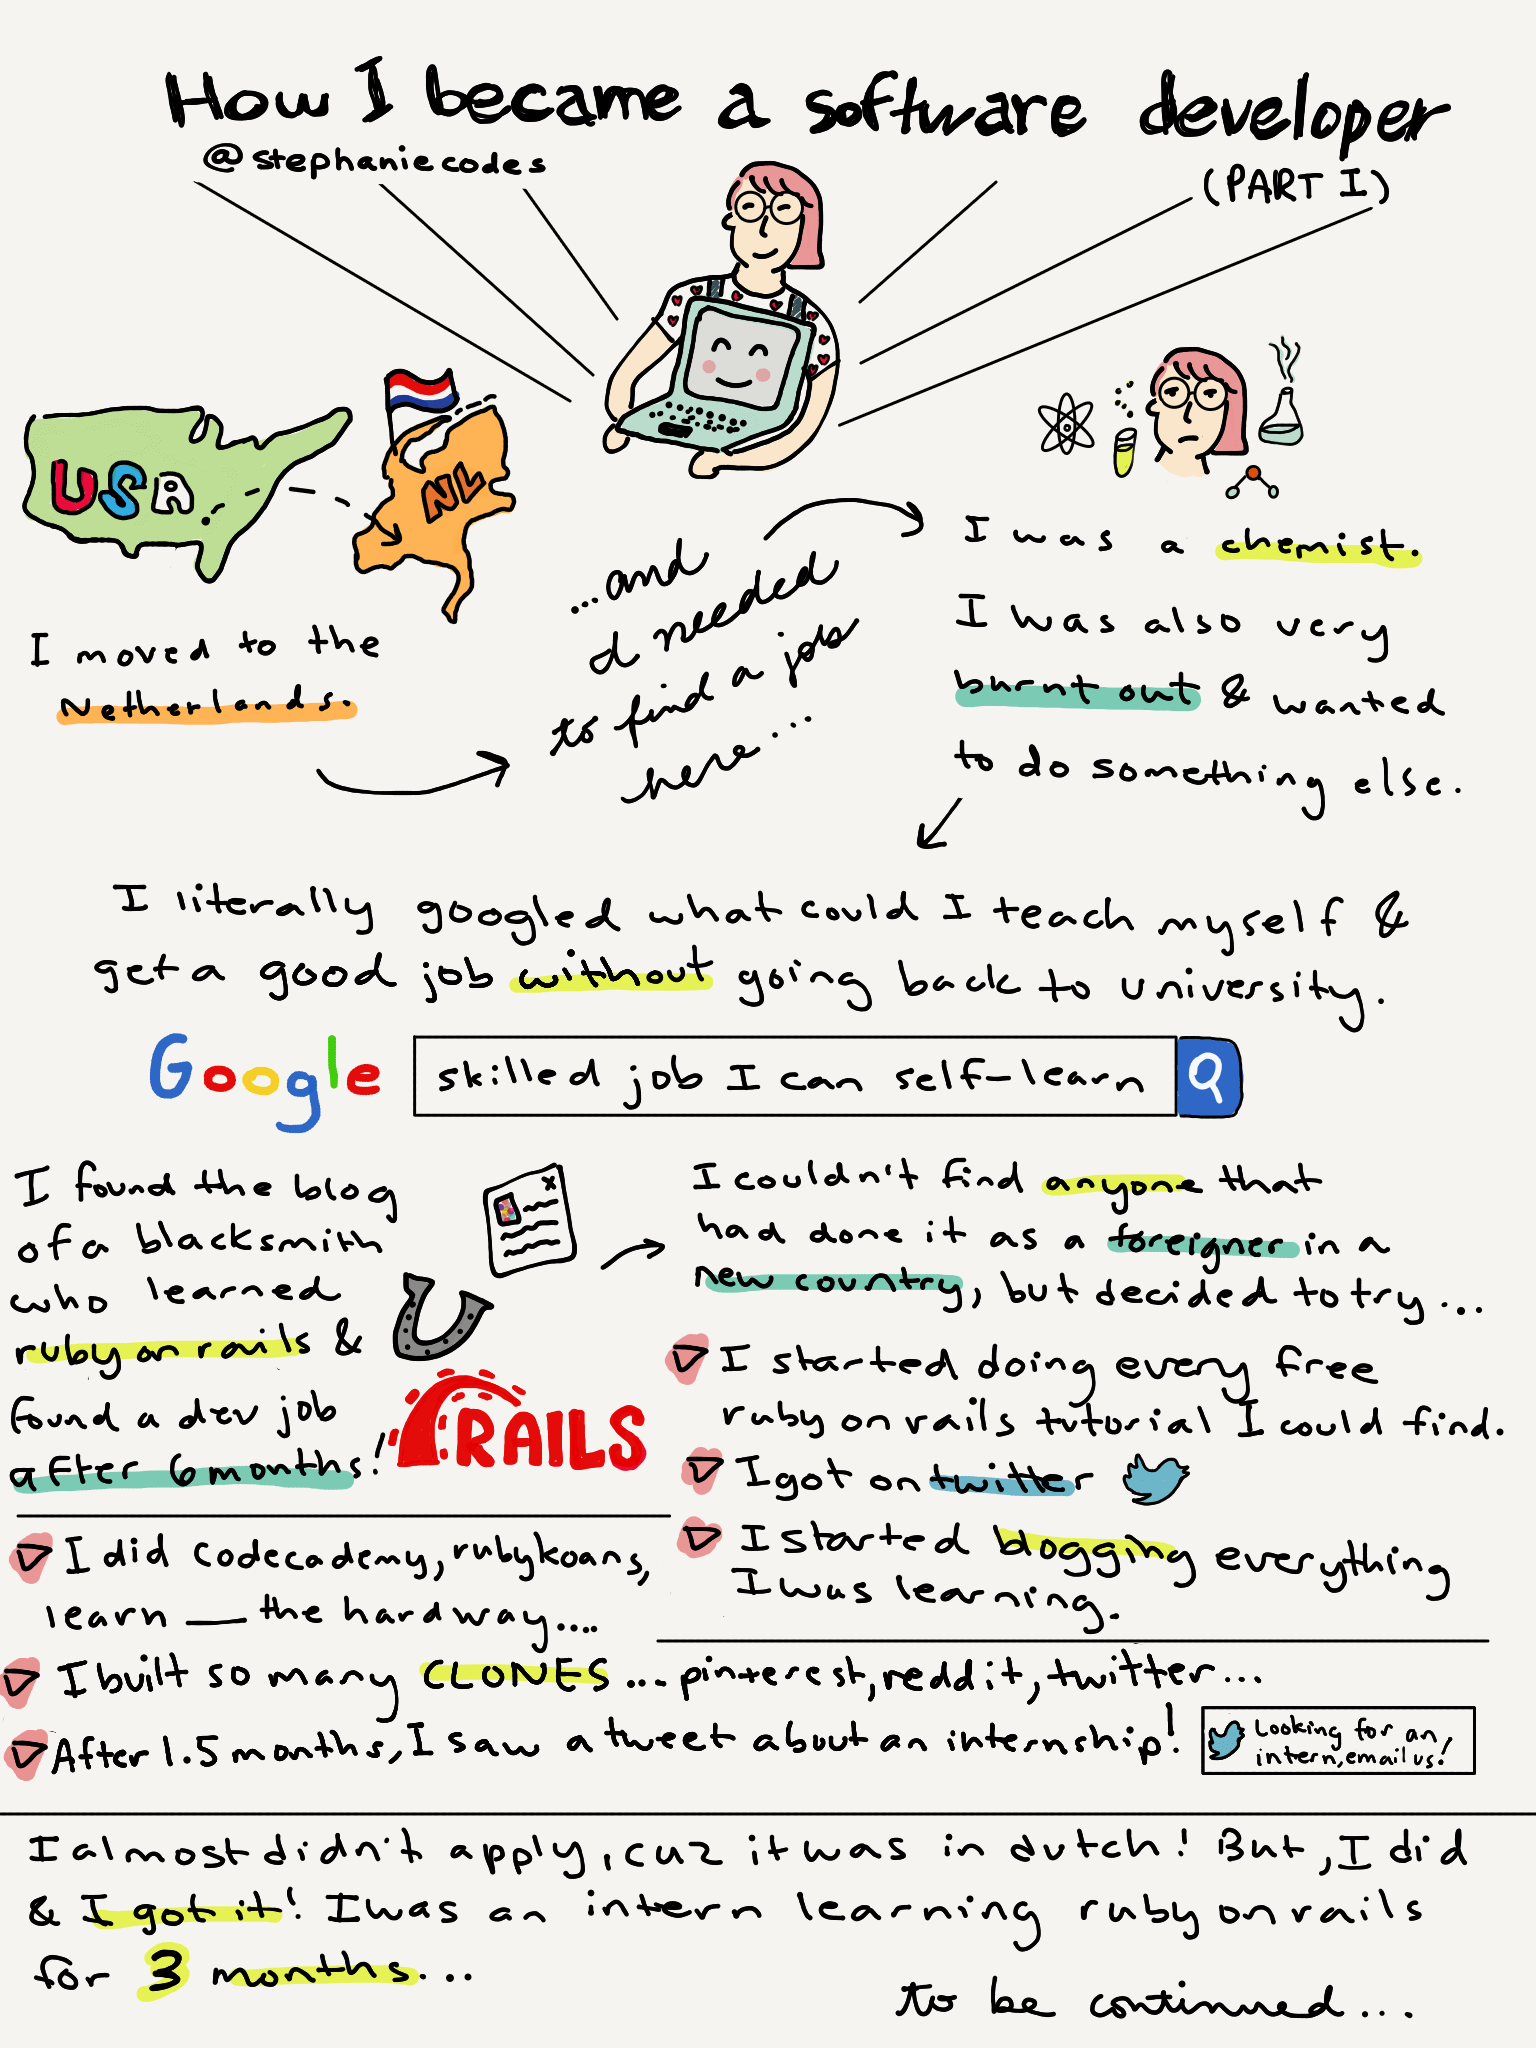 How I became a software developer
@stephaniecodes
(PART I)
USA
NL
I moved to the
Netherlands.
...and
I needed
to find a job
here...
I was a chemist.
I was also very
burnt out & wanted
to do something else.
I literally googled what could I teach myself &
get a good job without going back to university.
Google
skilled job I can self-learn
I found the blog
of a blacksmith
who learned
ruby on rails &
found a dev job
after 6 months!
RAILS
I couldn't find anyone that
had done it as a foreigner in a
new country, but decided to try...
I started doing every free
ruby on rails tutorial I could find.
I got on twitter
I started blogging everything
I was learning.
I did codecademy, rubykoans,
learn __ the hardway....
I built so many CLONES... pinterest, reddit, twitter...
After 1.5 months, I saw a tweet about an internship!
Looking for an
intern, email us!
I almost didn't apply, cuz it was in dutch! But, I did
& I got it! I was an intern learning ruby on rails
for 3 months...
to be continued...